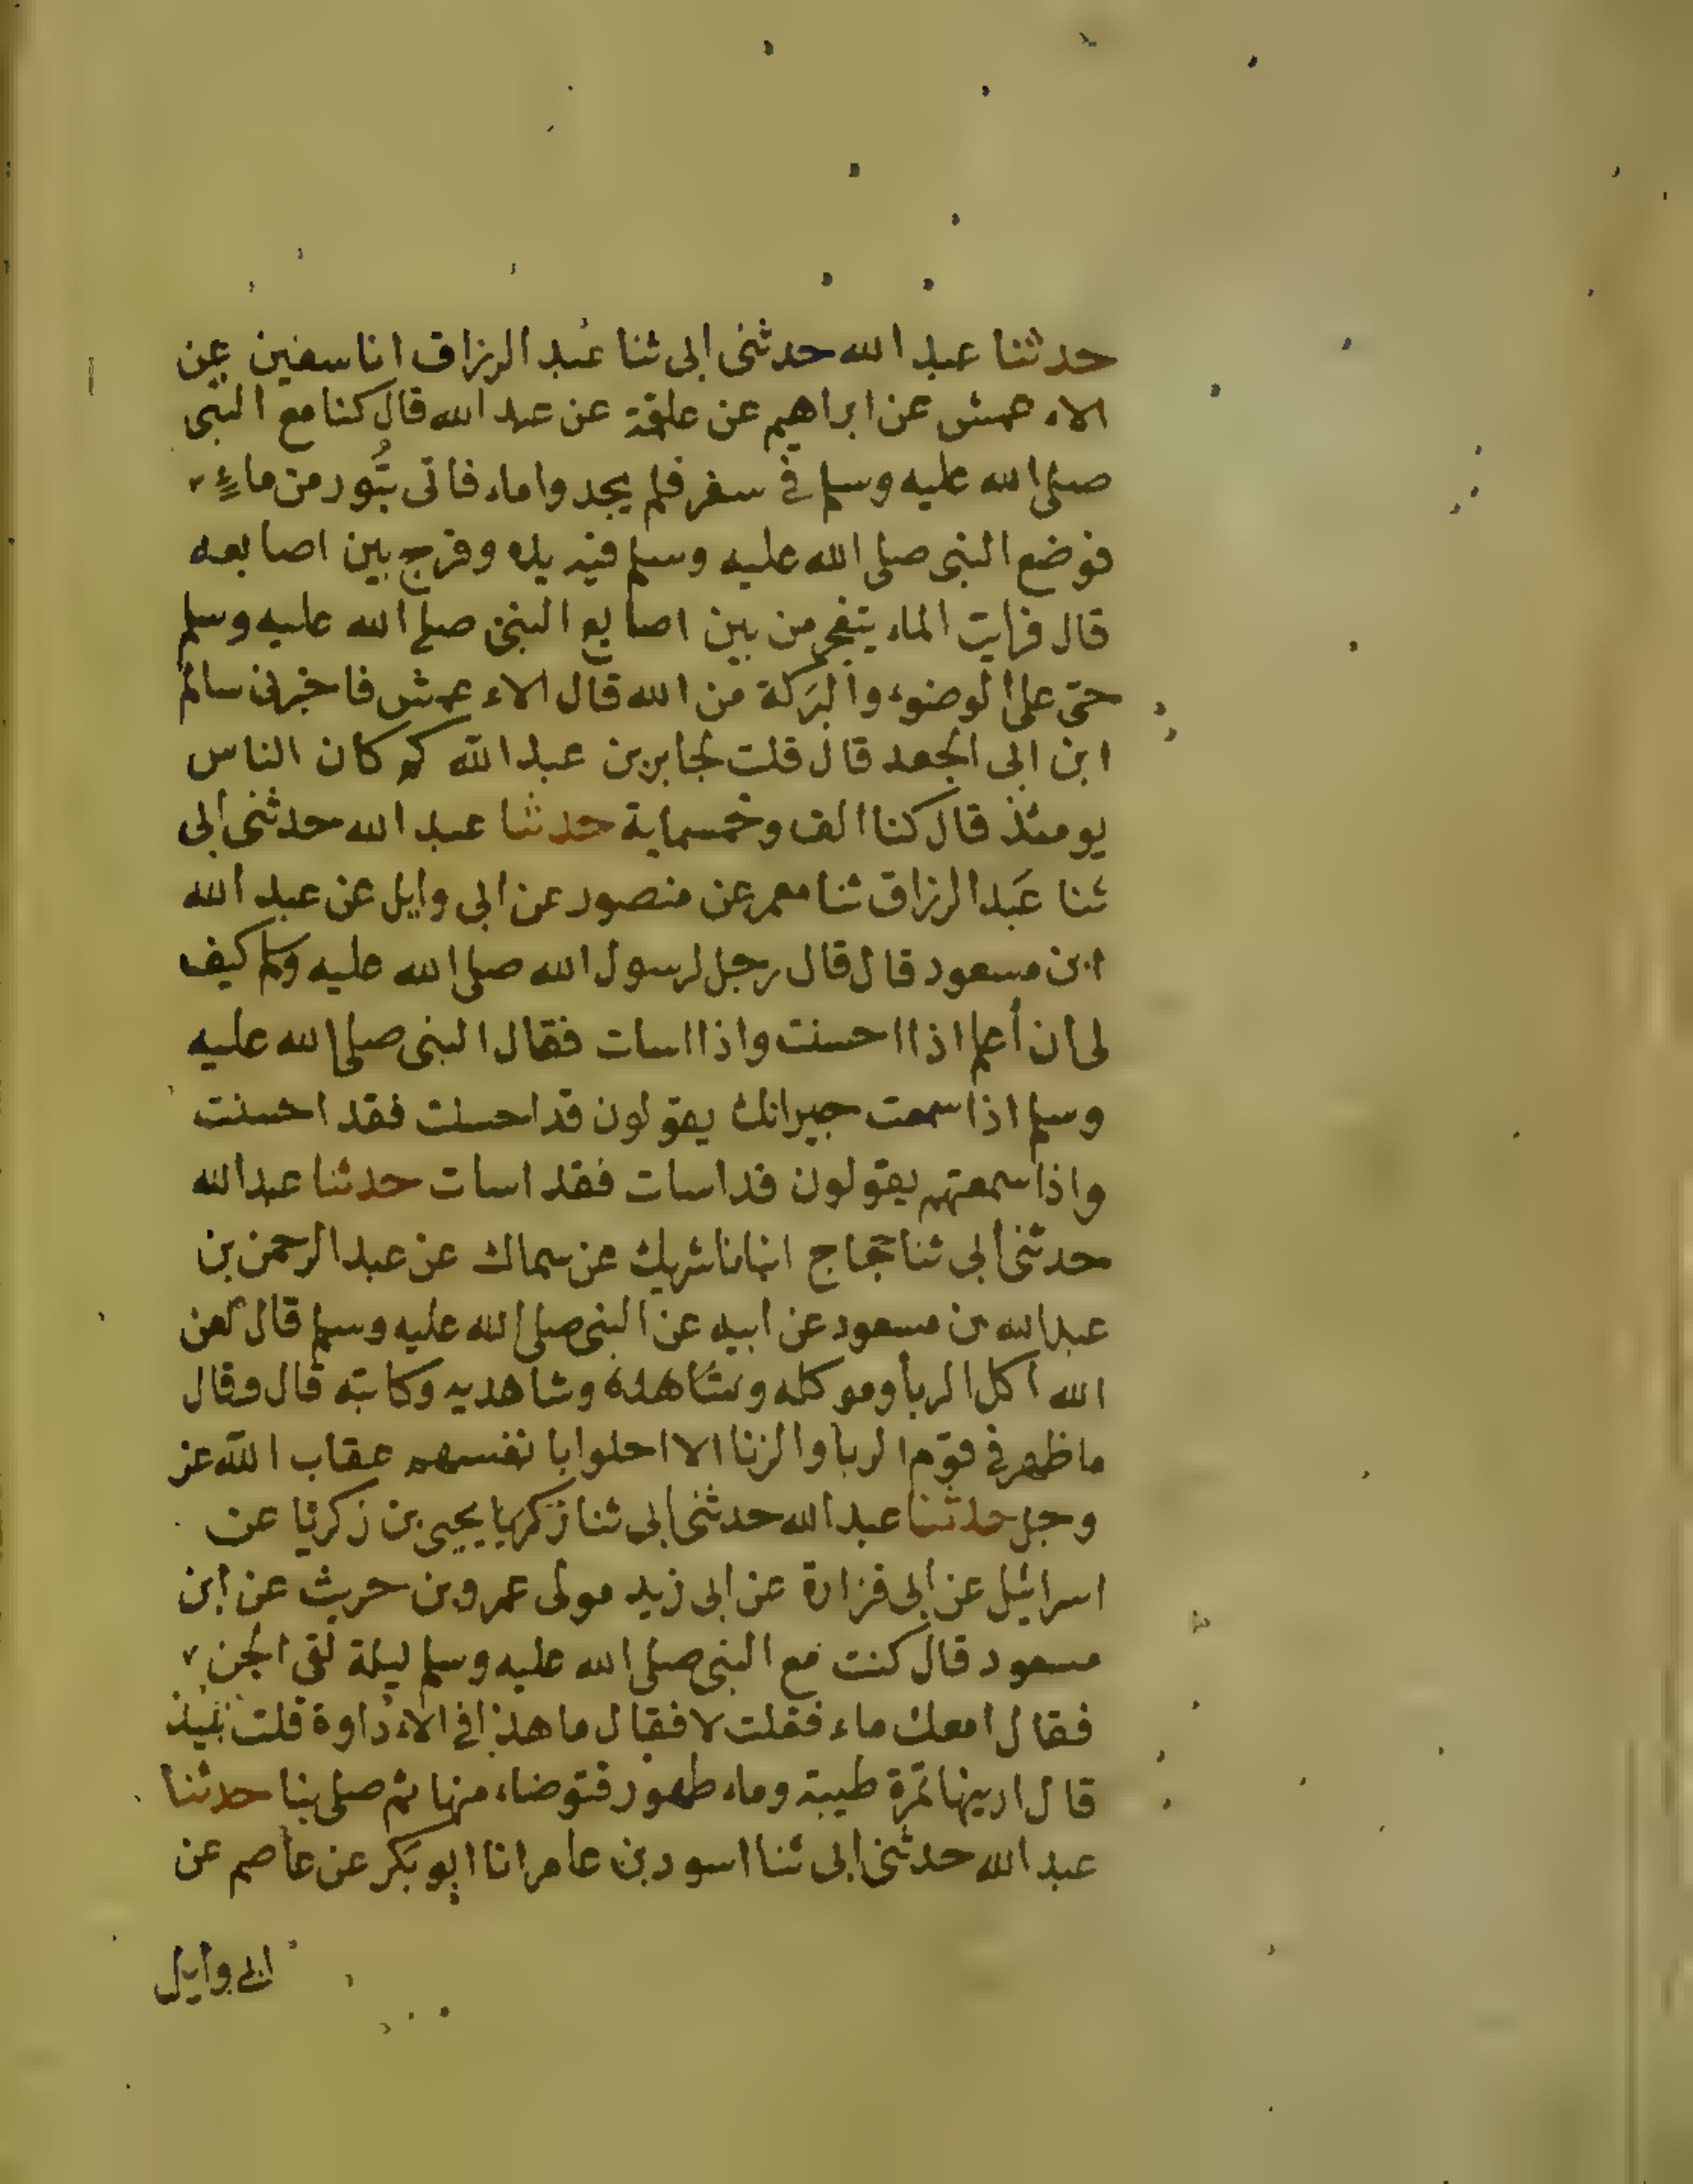 حدثنا عبد الله حدثنى ابى ثنا عبد الرزاق انا سفين عن
الاءعمش عن ابراهيم عن علقمة عن عبد الله قال كنا مع النبى
صلى الله عليه وسلم فى سفر فلم يجدوا ماء فاتى بتور من ماء
فوضع النبى صلى الله عليه وسلم فيه يده وفرج بين اصابعه
قال فرايت الماء يتفجر من بين اصابع النبى صلى الله عليه وسلم
حتى على الوضوء والبركة من الله قال الاءعمش فاخبرنى سالم
ابن ابى الجعد قال قلت لجابر بن عبد الله كم كان الناس
يومئذ قال كنا الف وخمسماية حدثنا عبد الله حدثنى ابى
ثنا عبد الرزاق ثنا معمر عن منصور عن ابى وايل عن عبد الله
ابن مسعود قال قال رجل لرسول الله صلى الله عليه وسلم كيف
لى ان أعلم اذا احسنت واذا اسات فقال النبى صلى الله عليه
وسلم اذا سمعت جيرانك يقولون قد احسنت فقد احسنت
واذا سمعتهم يقولون قد اسات فقد اسات حدثنا عبد الله
حدثنى ابى ثنا حجاج انبانا شريك عن سماك عن عبد الرحمن بن
عبد الله بن مسعود عن ابيه عن النبى صلى الله عليه وسلم قال لعن
الله آكل الربا وموكله وشاهده وشاهديه وكاتبه قال وقال
ما ظهر فى قوم الربا والزنا الا احلوا بانفسهم عقاب الله عز
وجل حدثنا عبد الله حدثنى ابى ثنا زكريا يحيى بن زكريا عن
اسرائيل عن ابى فزارة عن ابى زيد مولى عمرو بن حريث عن ابن
مسعود قال كنت مع النبى صلى الله عليه وسلم ليلة لقى الجن
فقال امعك ماء فقلت لا فقال ما هذا فى الاءداوة قلت نبيذ
قال ارينها تمرة طيبة وماء طهور فتوضاء منها ثم صلى بنا حدثنا
عبد الله حدثنى ابى ثنا اسود بن عامر انا ابو بكر عن عاصم عن
ابى وايل